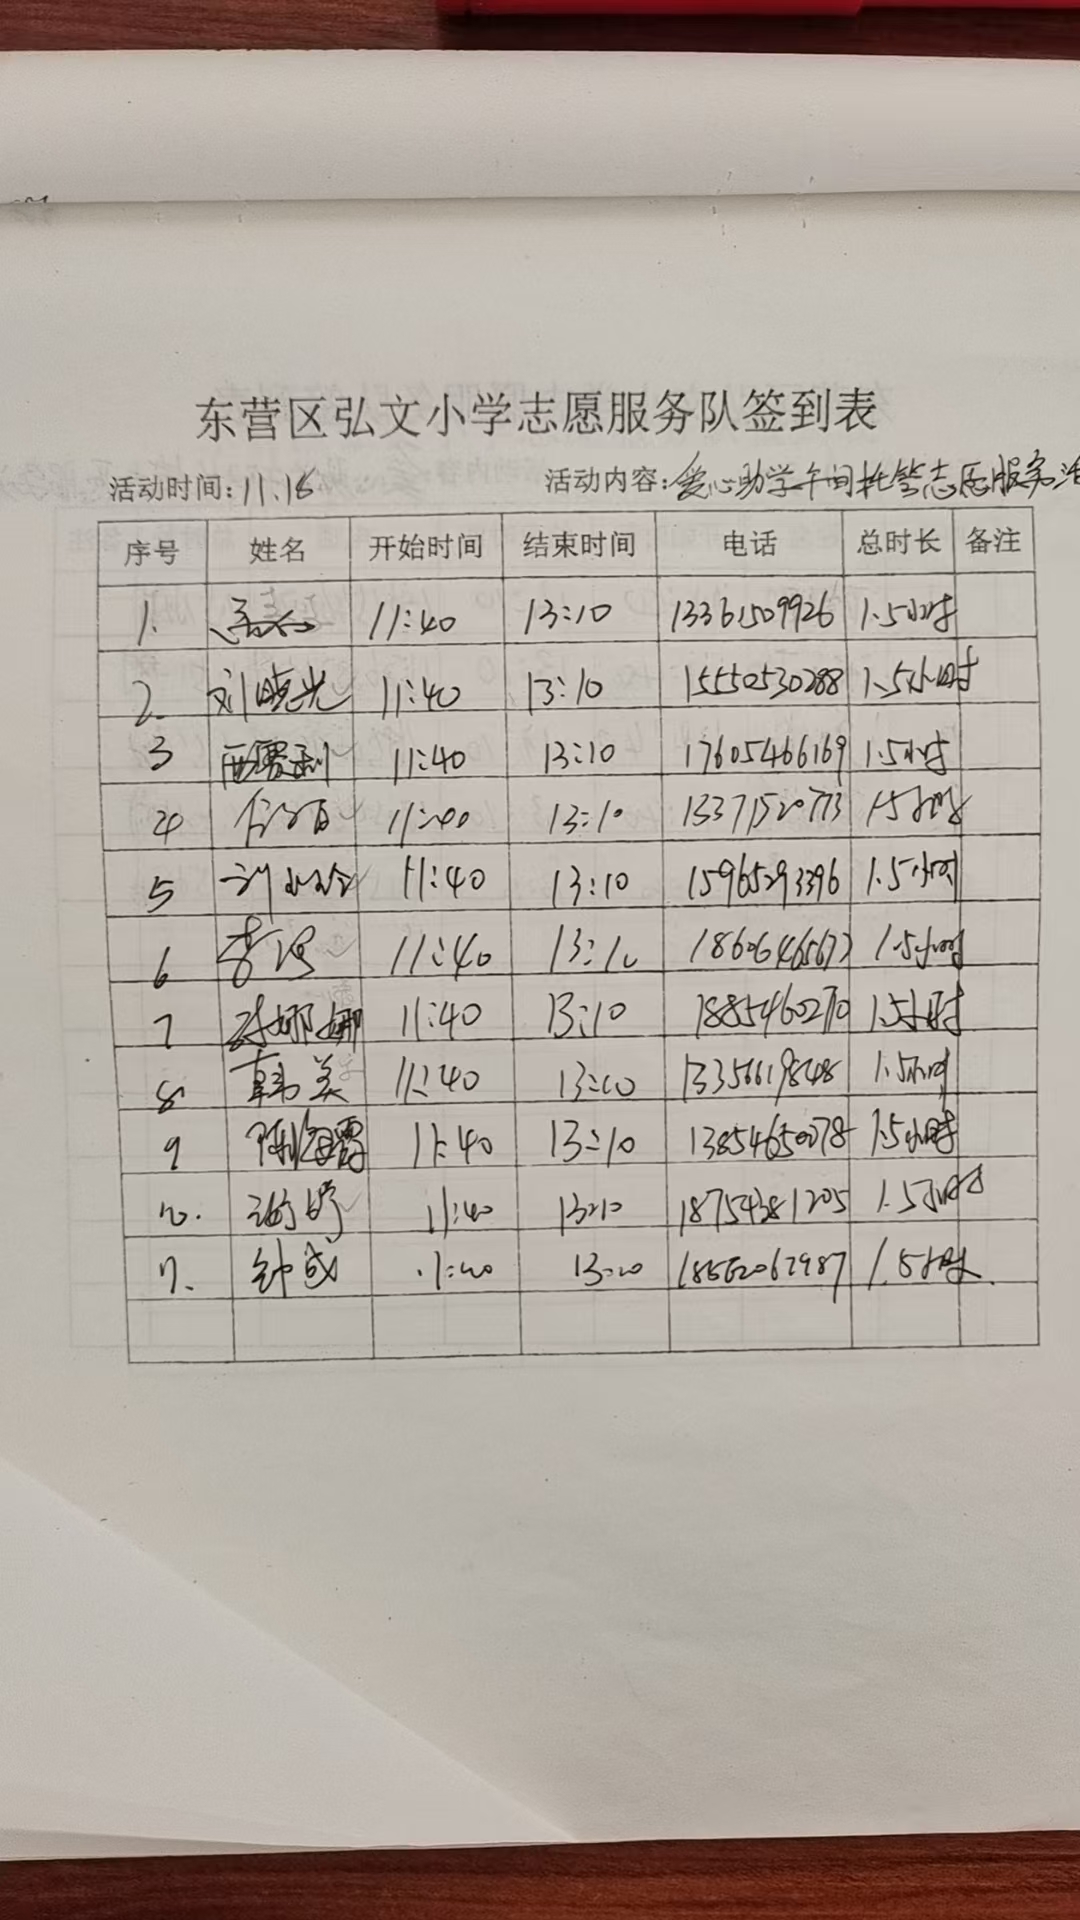 东营区弘文小学志愿服务队签到表
活动时间:11.16 活动内容:爱心助学午间托管志愿服务活
序号 姓名 开始时间 结束时间 电话 总时长 备注
1. 11:40 13:10 13361509926 1.5小时
2. 刘晓光 11:40 13:10 15550530288 1.5小时
3 11:40 13:10 17605466169 1.5小时
4 11:40 13:10 13371520773 1.5小时
5 11:40 13:10 15965293396 1.5小时
6 11:40 13:10 18606465673 1.5小时
7 娜娜 11:40 13:10 1885460270 1.5小时
8 韩美 11:40 13:10 13356619848 1.5小时
9 陈海霞 11:40 13:10 13854650078 1.5小时
10. 谢婷 11:40 13:10 18754381205 1.5小时
11. 钟成 11:40 13:10 1.5小时